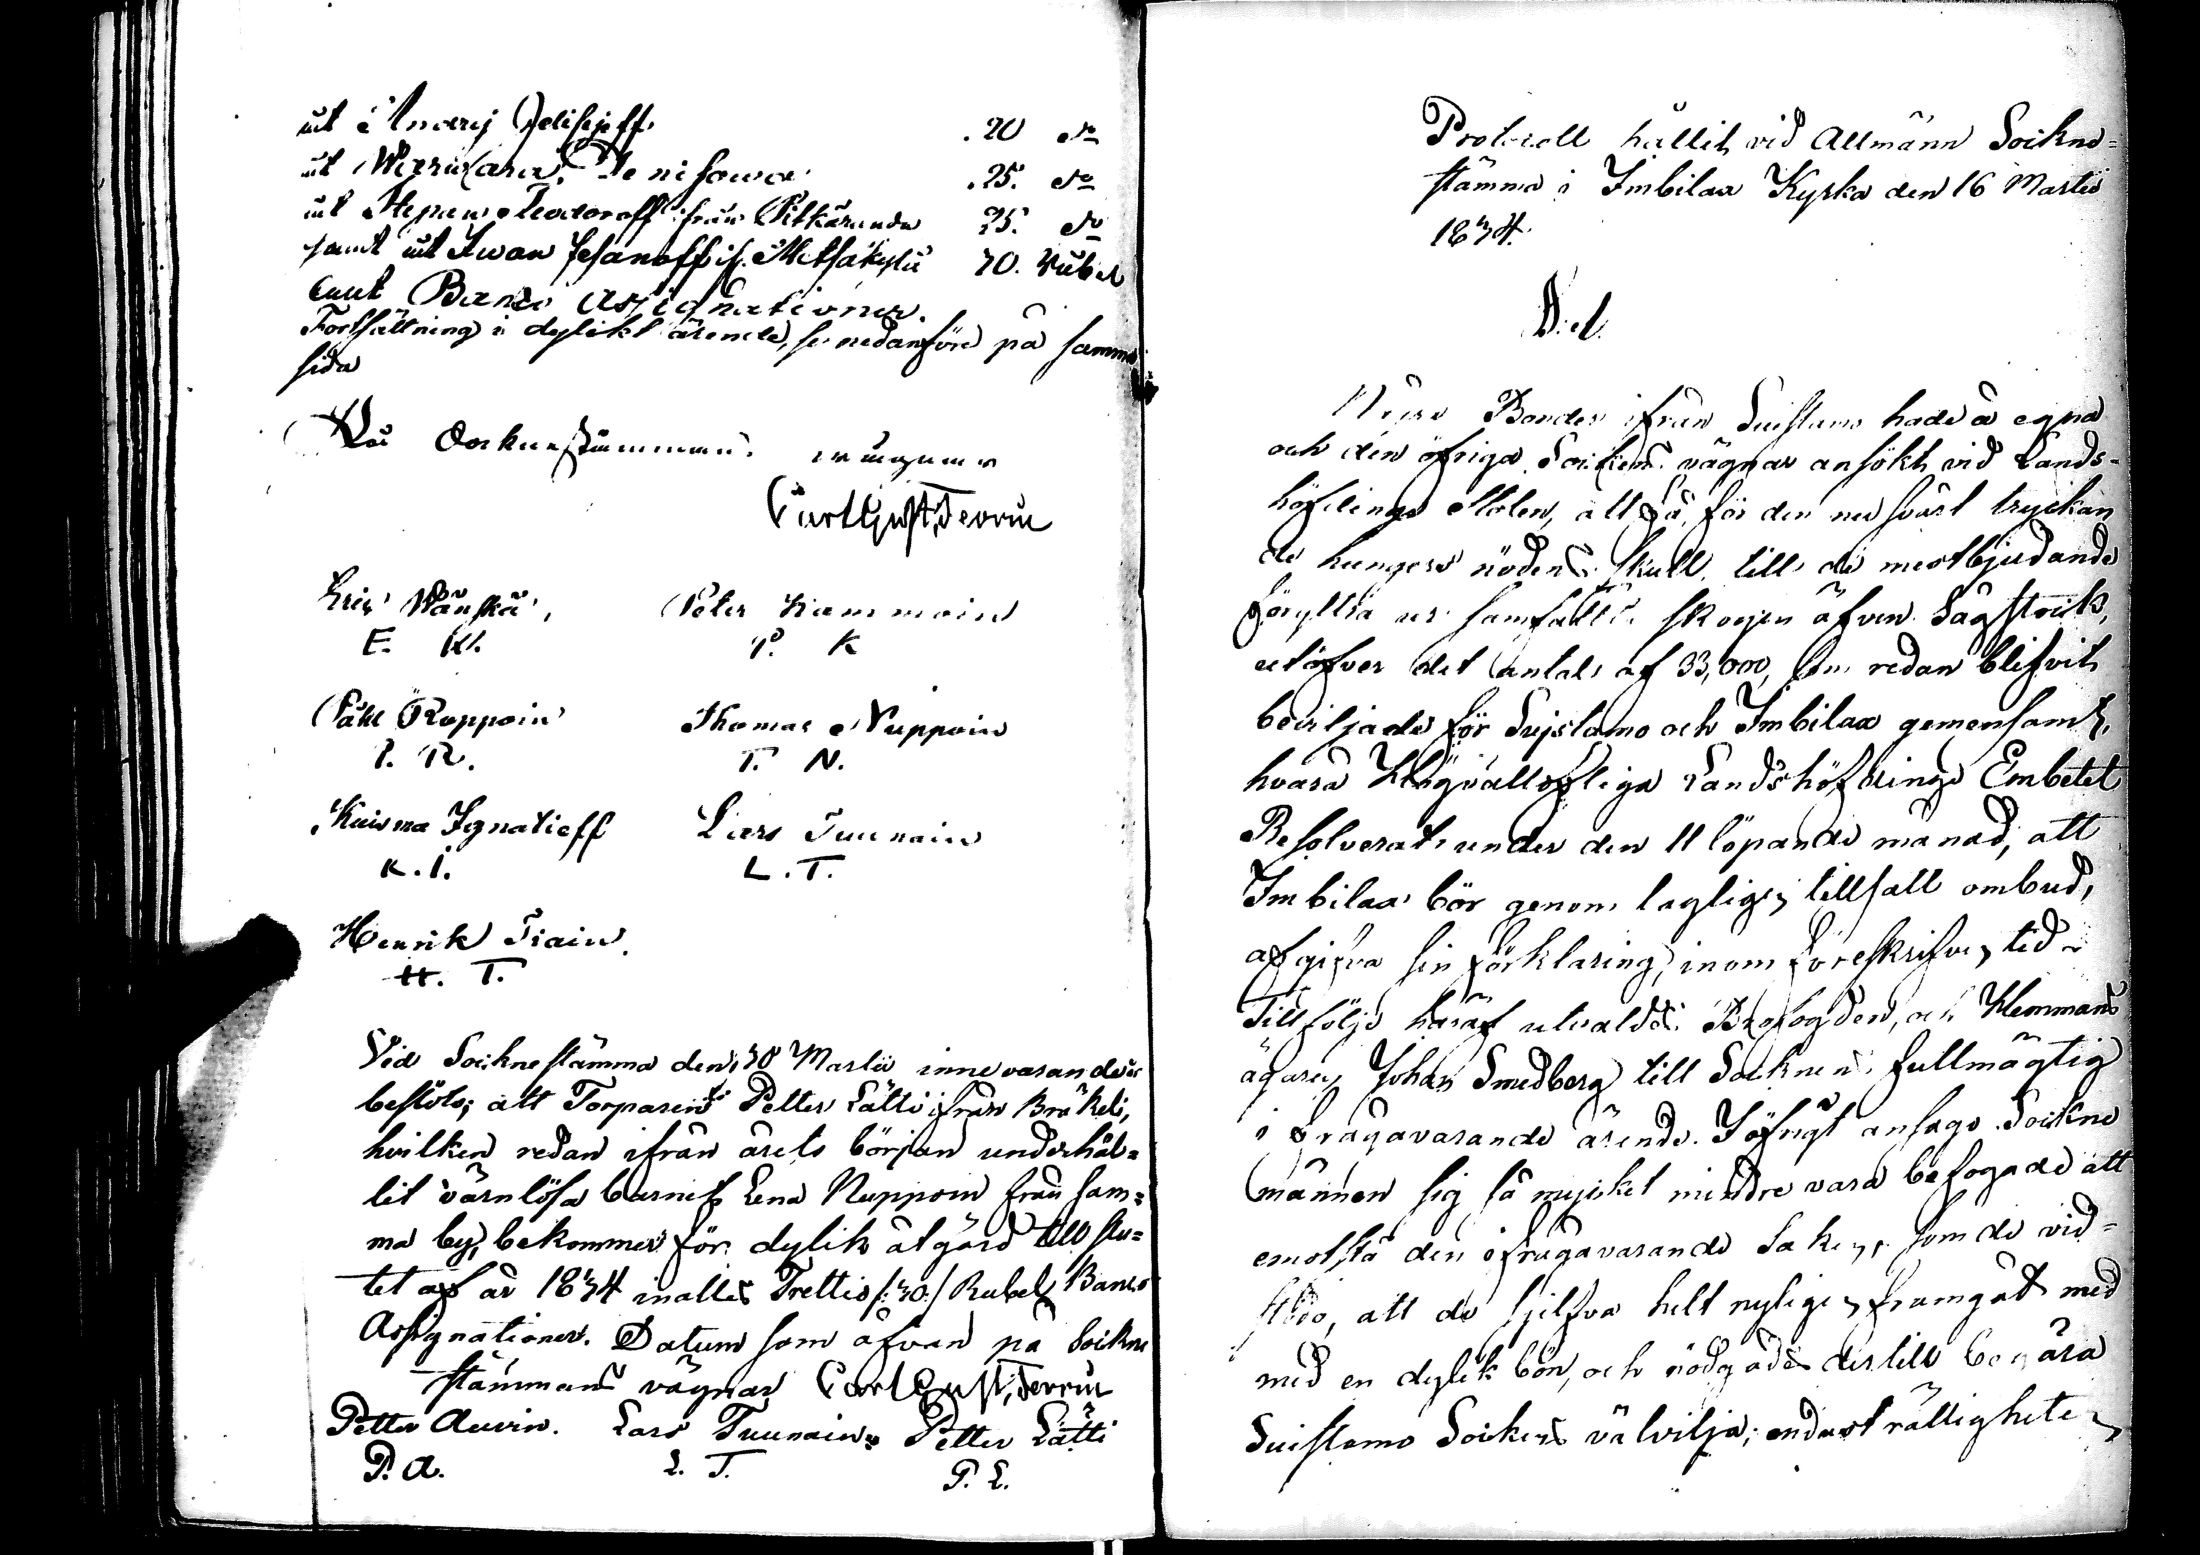 åt Andrej Jelisejeff .20 do
åt Warwara Denisowa .25. do
åt Stepan Feodoroff från Pitkäranda 25. do
samt åt Iwan Jesanoff if. Metsäkylä 70. Rubel
Banco Assignationer.
Fortsättning i dylikt ärende, se nedanföre på samma
sida
På Sockenstämmans vägnar
Carl Gust. Terrin
Eric Wänskä, Peter Kammoin
E. W. P. K
Påhl Roppoin Thomas Nuppoin
P. R. T. N.
Kuisma Ignatieff Lars Tuunain
K. I. L. T.
Henrik Tiain.
H. T.
Vid Sockne stämma den 30 Martii innevarande år
beslöts; att Torparen Petter Lätti ifrån Bräkeli,
hvilken redan ifrån årets början underhål=
lit värnlösa barnet Lena Nuppoin från sam=
ma by, bekommer för dylik åtgärd till slu=
tet af år 1834 inalles Trettio /:30:/ Rubel Banco
Assignationer. Datum som ofvan på Sockne
stämmans vägnar Carl Gust. Terrin
Petter Auvin. Lars Tuunain Petter Lätti
P. A. L. T. P. L.
Protocoll hållit vid Allmänn Sockne=
stämma i Imbilax Kyrka den 16 Martii
1834.
Några Bönder ifrån Suistamo hade å egna
och den öfriga Sockens vägnar ansökt vid Lands=
höfdinge Stolen, att få, för den nu svårt tryckan
de hungers nödens skull, till de mestbjudande
föryttra ur samfällte skogen äfven Sågstock,
utöfver det antal af 33,000, som redan blifvit
beviljade för Sujstamo och Imbilax gemensamt,
hvarå Högvällofliga Landshöfdinge Embetet
Resolverat under den 11 löpande månad, att
Imbilax bör genom lagligen tillsatt ombud,
afgifva sin förklaring, inom föreskrifven tid.
Till följe häraf utvaldes Brofogden, och Hemmans
ägaren Johan Smedberg till Socknens fullmägtig
i frågavarande ärende. I öfrigt ansågo Sockne
männen sig så mycket mindre vara befogade att
emotstå den ifrågavarande saken, som de vid=
stodo, att de sjelfva helt nyligen framgått med
med en dylik bön, och nödgades dertill begära
Suistamo Sockens välvilja; endast rättigheten